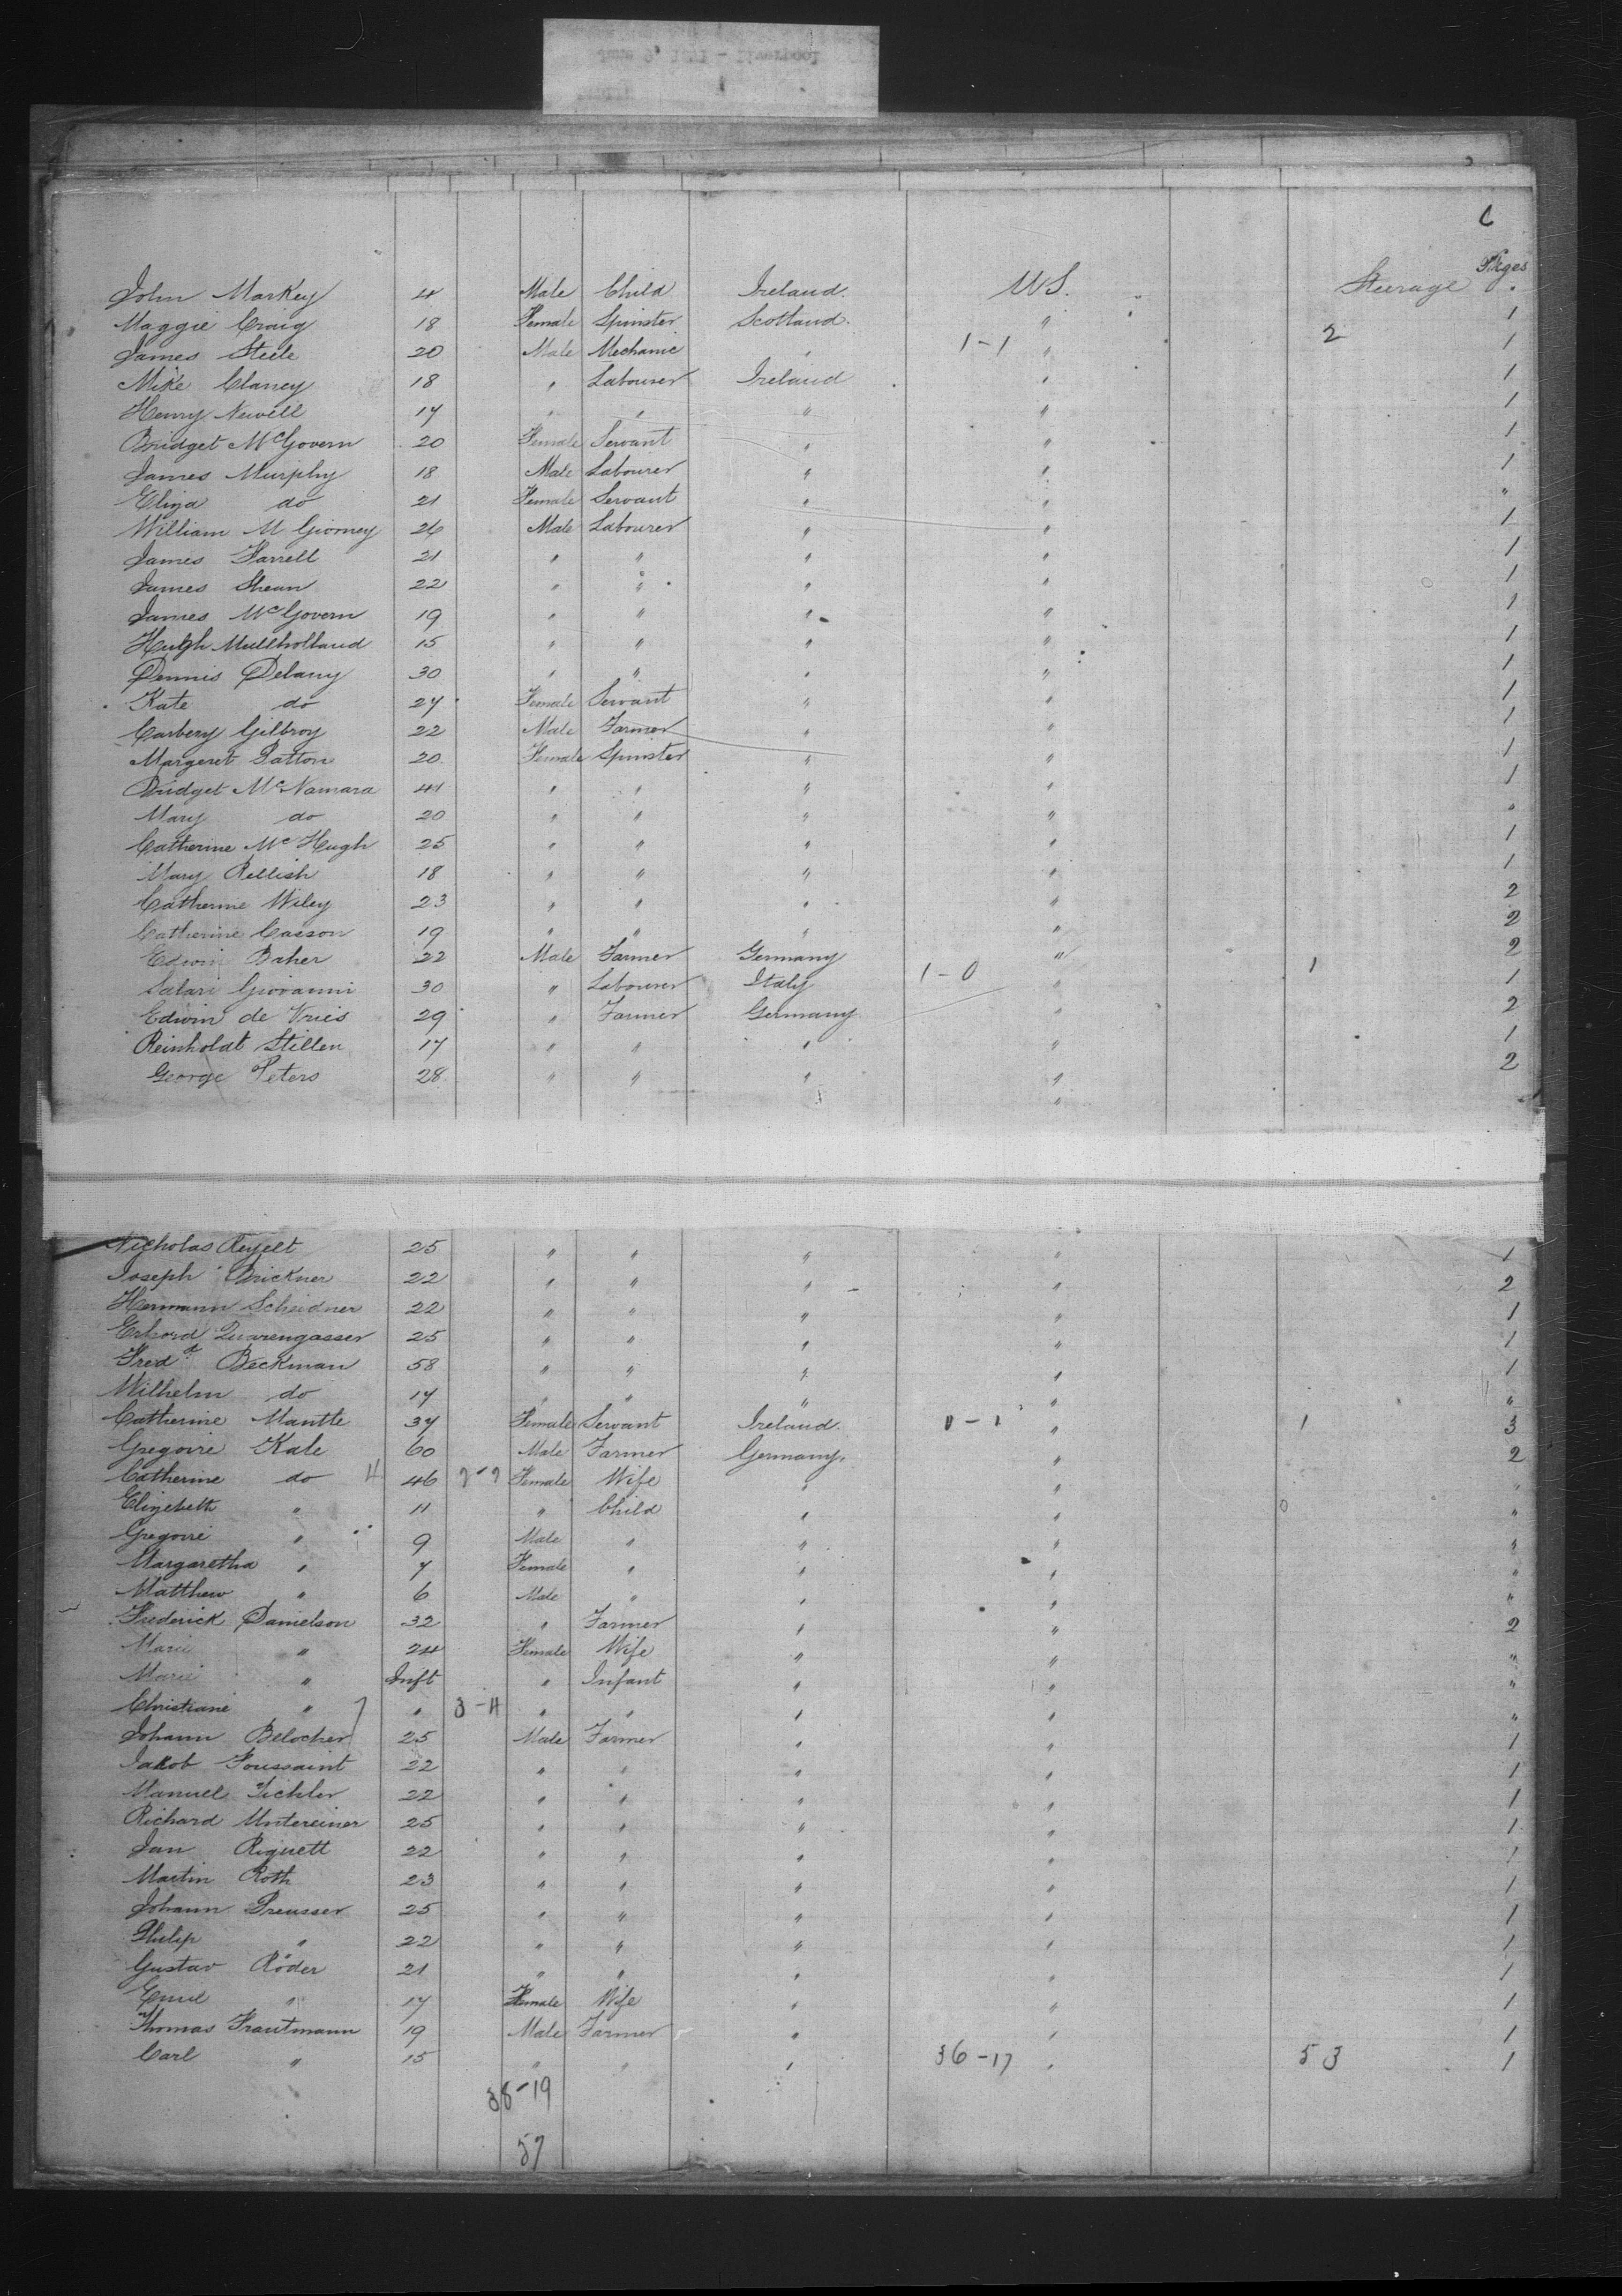 C
Pkges
John Markey 4 Male Child Ireland U S. Steerage "
Maggie Craig 18 Female Spinster Scotland " 1
James Steele 20 Male Mechanic " 1-1 " 2 1
Mike Clancy 18 " Labourer Ireland " 1
Henry Newell 17 " " " " 1
Bridget McGovern 20 Female Servant " " 1
James Murphy 18 Male Labourer " " 1
Eliza do 21 Female Servant " " "
William M 26 Male Labourer " " 1
James Farrell 21 " " " " 1
James Shean 22 " " " " 1
James McGovern 19 " " " " 1
Hugh Mullholland 15 " " " " 1
Dennis Delany 30 " " " " 1
Kate do 27 Female Servant " " 1
Carbery Gilbroy 22 Male Farmer " " 1
Margeret Patton 20 Female Spinster " " 1
Bridget McNamara 41 " " " " 1
Mary do 20 " " " " "
Catherine McHugh 25 " " " " 1
Mary Rellish 18 " " " " 1
Catherine Wiley 23 " " " " 2
Catherine Casson 19 " " " " 2
Edwin Baher 22 Male Farmer Germany " 2
Salari Giovanni 30 " Labourer Italy 1-0 " 1 1
Edwin de Vries 29 " Farmer Germany " 2
Reinholdt Stillen 17 " " " " 1
George Peters 28 " " " " 2
"
Nicholas 25 " " " " 1
Joseph Brickner 22 " " " " 2
Hermann Scheidner 22 " " " " 1
Erhord Quarengasser 25 " " " " 1
Fredk Beckman 58 " " " " 1
Wilhelm do 17 " " " " "
Catherine Mantle 37 Female Servant Ireland 0-1 " 1 3
Gregoire Kale 60 Male Farmer Germany. " 2
Catherine do 4 46 2-2 Female Wife " " "
Elizebeth " 11 " Child " " 0 "
Gregoire " 9 Male " " " "
Margaretha " 7 Female " " " "
Matthew " 6 Male " " " "
Frederick Danielson 32 " Farmer " " 2
Marie " 24 Female Wife " " "
Marie " Inft " Infant " " "
Christiane " " 3-4 " " " " "
Johann Belocher 25 Male Farmer " " 1
Jakob Toussaint 22 " " " " 1
Manuel Tichler 22 " " " " 1
Richard Untereiner 25 " " " " 1
Jan Riquett 22 " " " " 1
Martin Roth 23 " " " " 1
Johann Preusser 25 " " " " 1
Philip " 22 " " " " 1
Gustav Röder 21 " " " " 1
Emil " 17 Female Wife " " 1
Thomas Trautmann 19 Male Farmer " " 1
Carl " 15 " " " 36-17 " 53 1
38-19
57